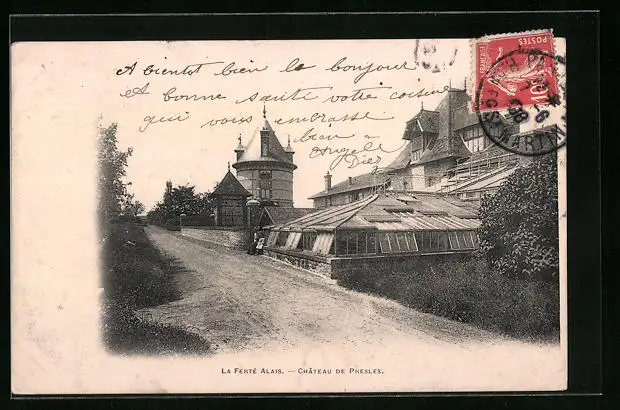 A bientôt bien le bonjour
et bonne santé votre cousine
qui vous embrasse
bien
Angèle
POSTES
10
LA FERTÉ ALAIS. — CHÂTEAU DE PRESLES.